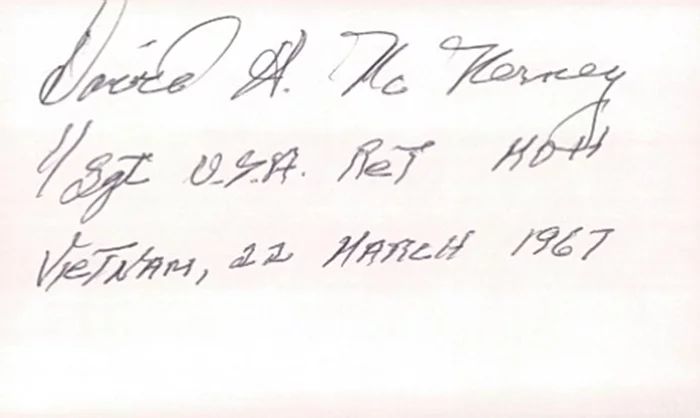 David H. McNerney
1/Sgt U.S.A. Ret MOH
Vietnam, 22 March 1967